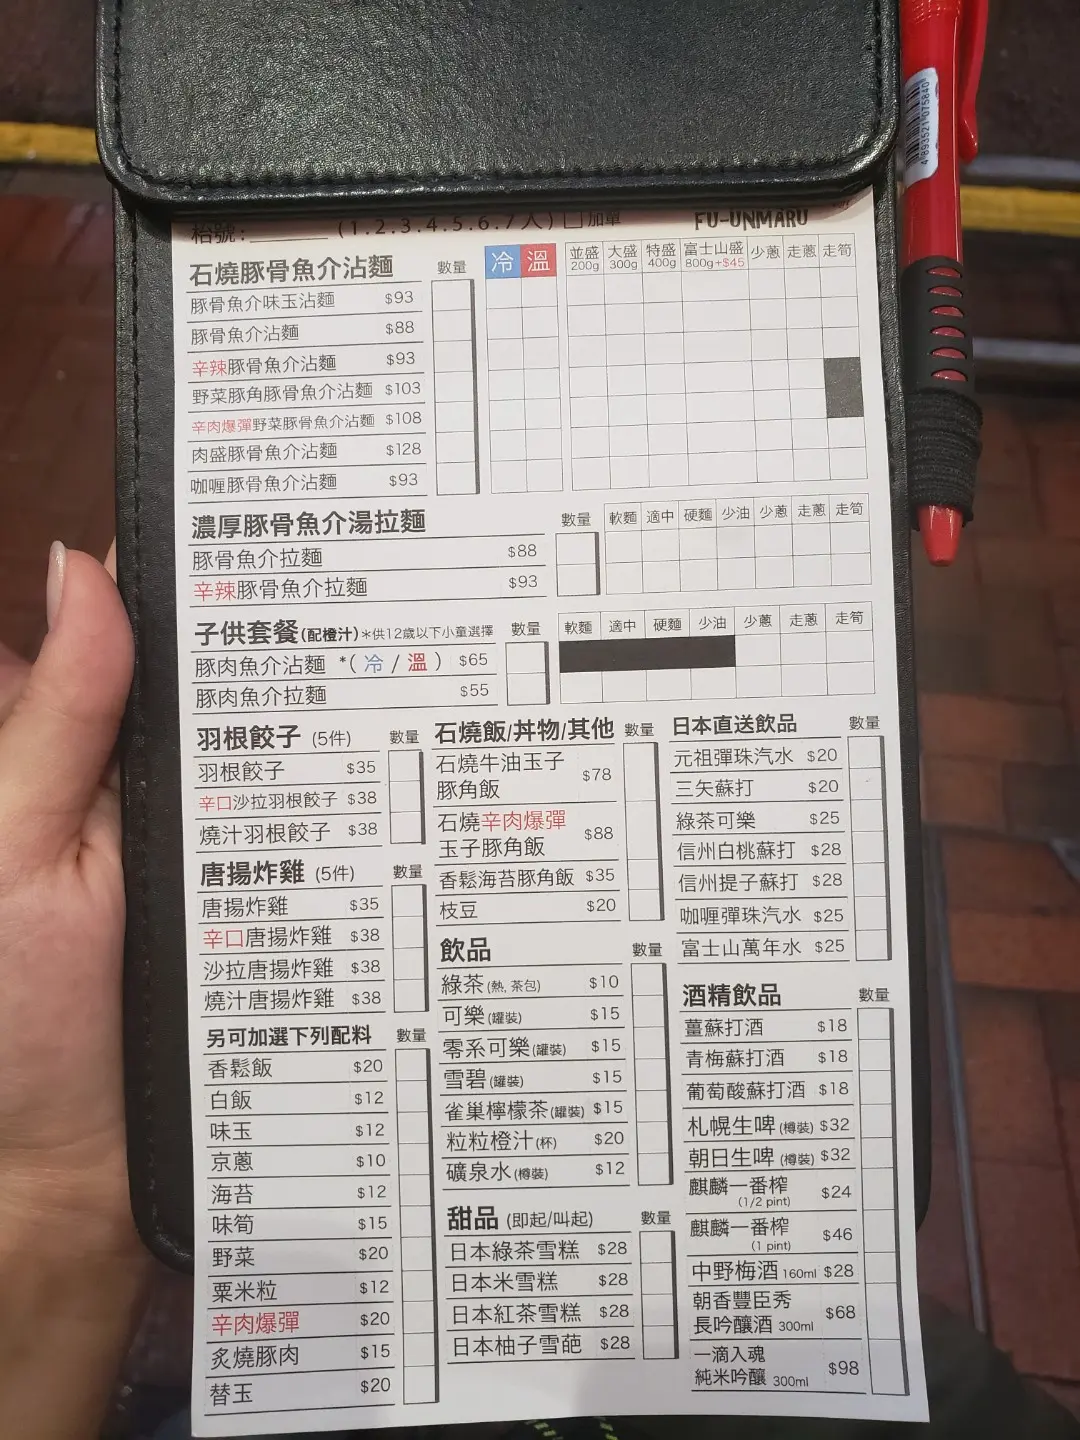 枱號:________ (1.2.3.4.5.6.7人) □加單 FU-UNMARU
石燒豚骨魚介沾麵 數量 冷 溫 並盛 200g 大盛 300g 特盛 400g 富士山盛 800g+$45 少蔥 走蔥 走筍
豚骨魚介味玉沾麵 $93
豚骨魚介沾麵 $88
辛辣豚骨魚介沾麵 $93
野菜豚角豚骨魚介沾麵 $103
辛肉爆彈野菜豚骨魚介沾麵 $108
肉盛豚骨魚介沾麵 $128
咖喱豚骨魚介沾麵 $93
濃厚豚骨魚介湯拉麵 數量 軟麵 適中 硬麵 少油 少蔥 走蔥 走筍
豚骨魚介拉麵 $88
辛辣豚骨魚介拉麵 $93
子供套餐(配橙汁)*供12歲以下小童選擇 數量 軟麵 適中 硬麵 少油 少蔥 走蔥 走筍
豚肉魚介沾麵 *(冷/溫) $65
豚肉魚介拉麵 $55
羽根餃子 (5件) 數量
羽根餃子 $35
辛口沙拉羽根餃子 $38
燒汁羽根餃子 $38
唐揚炸雞 (5件) 數量
唐揚炸雞 $35
辛口唐揚炸雞 $38
沙拉唐揚炸雞 $38
燒汁唐揚炸雞 $38
另可加選下列配料 數量
香鬆飯 $20
白飯 $12
味玉 $12
京蔥 $10
海苔 $12
味筍 $15
野菜 $20
粟米粒 $12
辛肉爆彈 $20
炙燒豚肉 $15
替玉 $20
石燒飯/丼物/其他 數量
石燒牛油玉子
豚角飯 $78
石燒辛肉爆彈
玉子豚角飯 $88
香鬆海苔豚角飯 $35
枝豆 $20
飲品 數量
綠茶(熱, 茶包) $10
可樂(罐裝) $15
零系可樂(罐裝) $15
雪碧(罐裝) $15
雀巢檸檬茶(罐裝) $15
粒粒橙汁(杯) $20
礦泉水(樽裝) $12
甜品 (即起/叫起) 數量
日本綠茶雪糕 $28
日本米雪糕 $28
日本紅茶雪糕 $28
日本柚子雪葩 $28
日本直送飲品 數量
元祖彈珠汽水 $20
三矢蘇打 $20
綠茶可樂 $25
信州白桃蘇打 $28
信州提子蘇打 $28
咖喱彈珠汽水 $25
富士山萬年水 $25
酒精飲品 數量
薑蘇打酒 $18
青梅蘇打酒 $18
葡萄酸蘇打酒 $18
札幌生啤(樽裝) $32
朝日生啤(樽裝) $32
麒麟一番榨
(1/2 pint) $24
麒麟一番榨
(1 pint) $46
中野梅酒 160ml $28
朝香豐臣秀
長吟釀酒 300ml $68
一滴入魂
純米吟釀 300ml $98
4 893521 075840